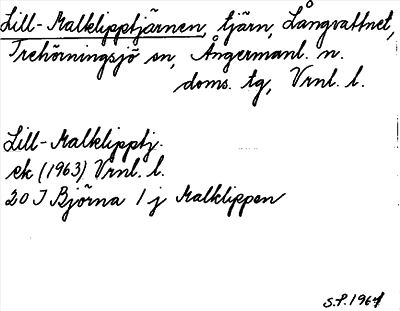 Lill-Malklipptjärnen, tjärn, Långvattnet,
Trehörningsjö sn, Ångermanl. n.
doms. tg, Vrnl. l.
Lill-Malklipptj.
ek (1963) Vrnl. l.
20 I Björna 1 j Malklippen
S.P. 1967